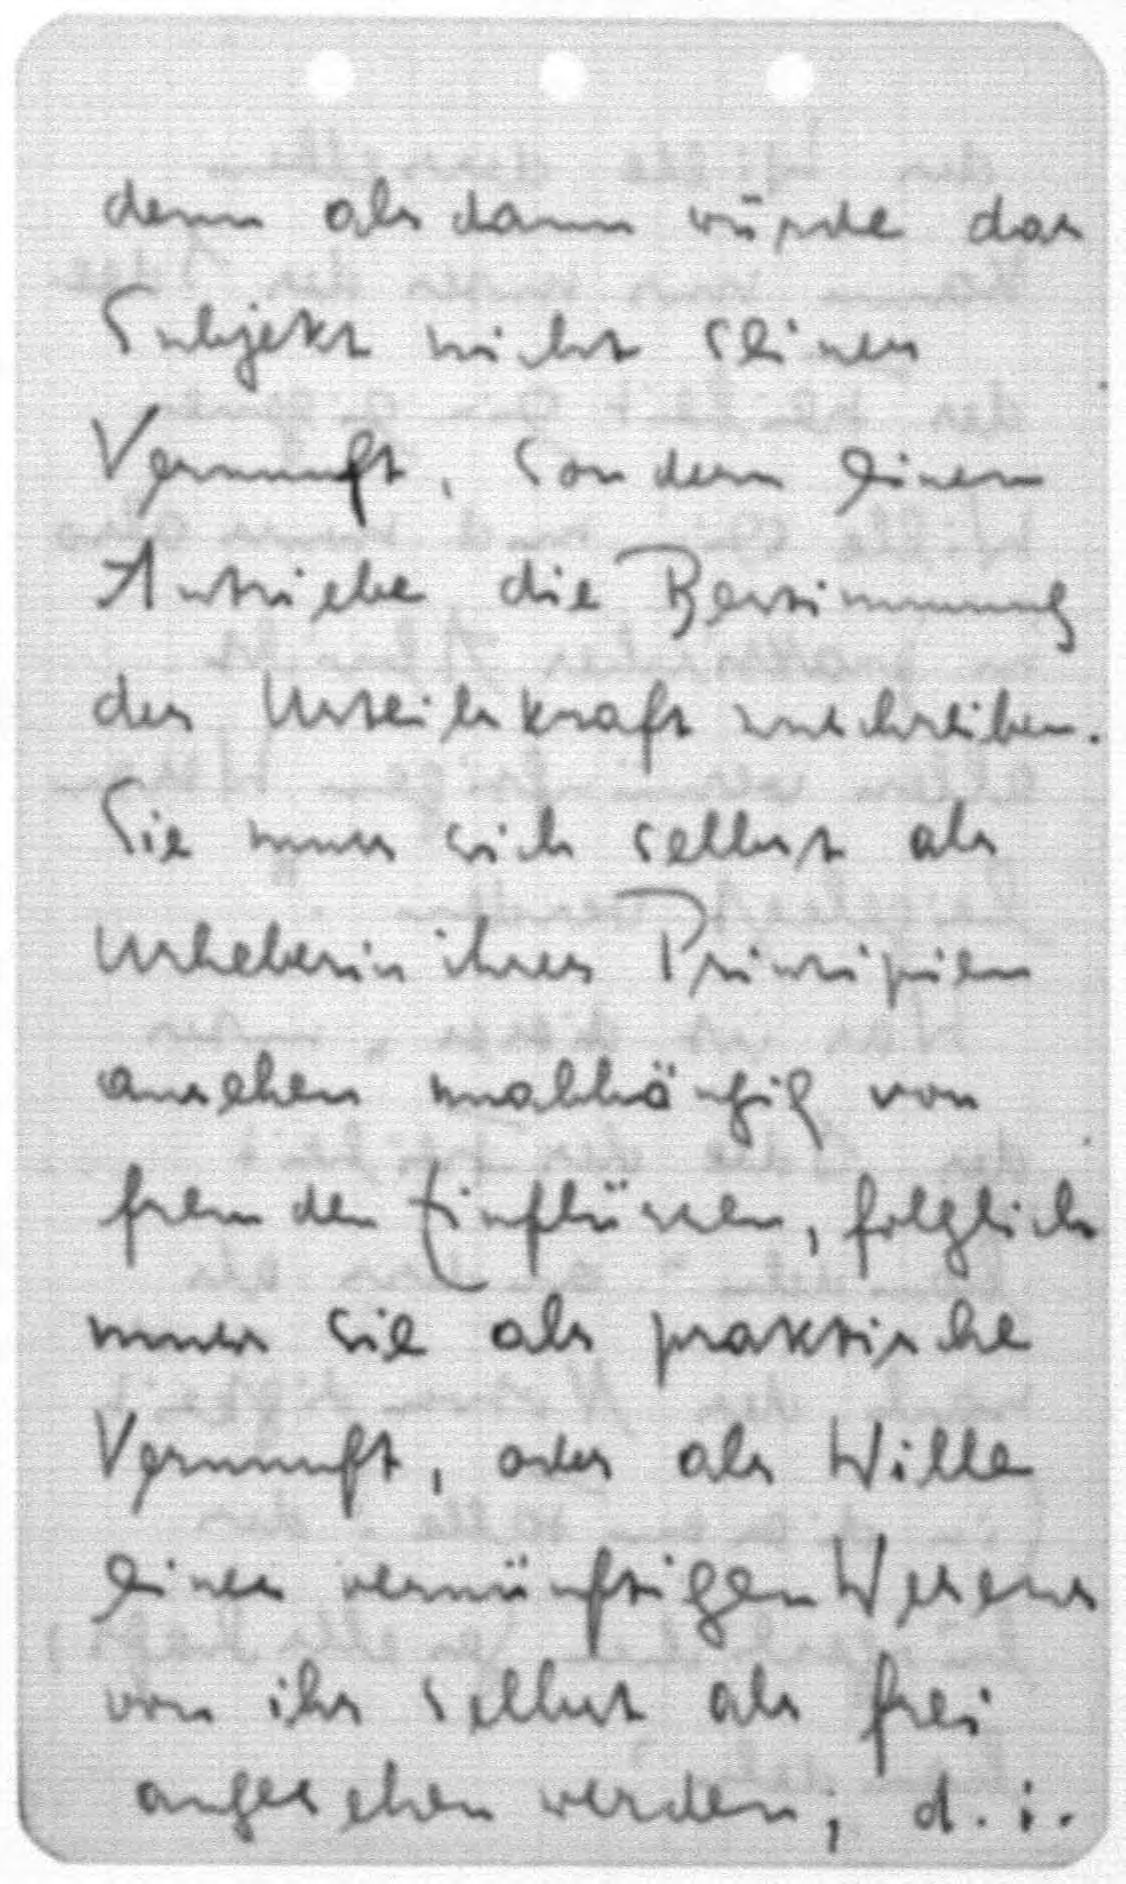 denn alsdann würde das
Subjekt nicht seiner
Vernunft, sondern einem
Antriebe die Bestimmung
der Urteilskraft zuschreiben.
Sie muss sich selbst als
Urheberin ihrer Prinzipien
ansehen unabhängig von
fremden Einflüssen, folglich
muss sie als praktische
Vernunft, oder als Wille
eines vernünftigen Wesens
von ihr selbst als frei
angesehen werden; d.i.